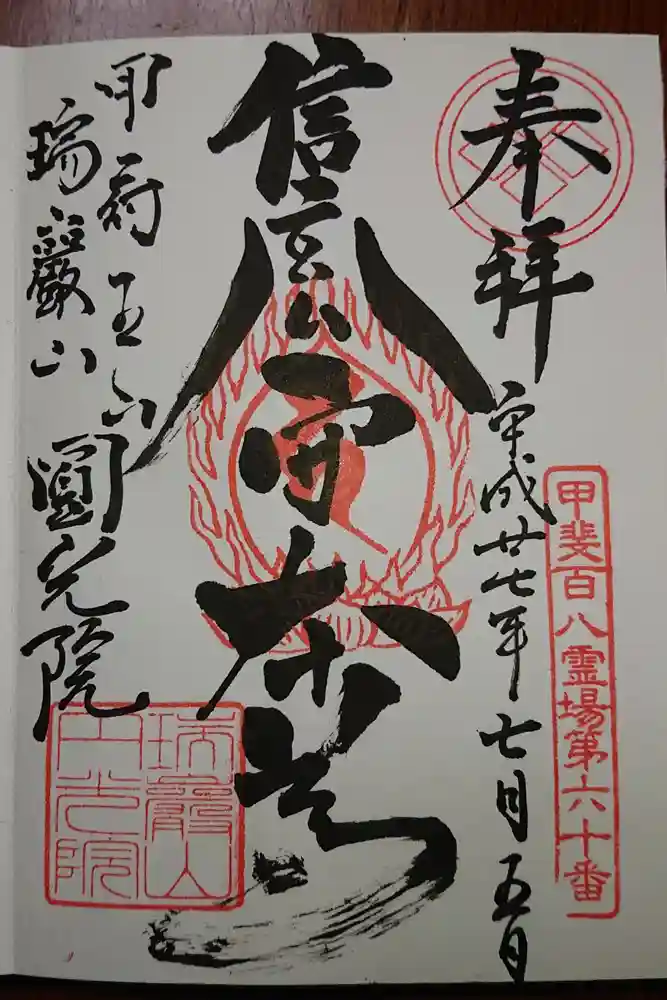 奉拝
甲斐百八霊場第六十番
平成廿七年七月五日
信玄公守本尊
甲府五山
瑞巖山 圓光院
瑞巖山
円光院